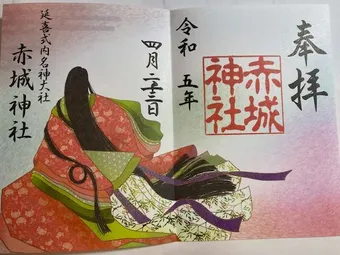 奉拝
赤城
神社
令和五年
四月二十三日
延喜式内名神大社
赤城神社